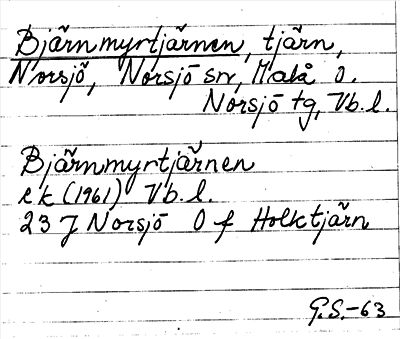 Bjärnmyrtjärnen, tjärn,
Norsjö, Norsjö sn, Malå o.
Norsjö tg, Vb. l.
Bjärnmyrtjärnen
ek (1961) Vb. l.
23 J Norsjö O f Holktjärn
G.S.-63